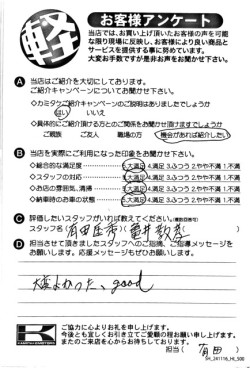 軽
お客様アンケート
当店では、お買い上げ頂いたお客様の声を可能
な限り現場に反映し、お客様により良い商品と
サービスを提供する事に努めています。
大変お手数ですが是非お声をお聞かせ下さい。
Ⓐ 当店はご紹介を大切にしております。
ご紹介キャンペーンについてお聞かせ下さい。
◇カミタケご紹介キャンペーンのご説明はありましたでしょうか
はい いいえ
◇具体的にご紹介頂ける方とのご関係をお聞かせ頂けますでしょうか
ご親族 ご友人 職場の方 機会があれば紹介したい
Ⓑ 当店を実際にご利用になった印象をお聞かせ下さい。
◇総合的な満足度 5.大満足 4.満足 3.ふつう 2.やや不満 1.不満
◇スタッフの対応 5.大満足 4.満足 3.ふつう 2.やや不満 1.不満
◇お店の雰囲気、清掃 5.大満足 4.満足 3.ふつう 2.やや不満 1.不満
◇納車時のお車の状態 5.大満足 4.満足 3.ふつう 2.やや不満 1.不満
Ⓒ 評価したいスタッフがいれば教えてください。(複数回答可)
スタッフ名(有田
Ⓓ 担当させて頂きましたスタッフへのご指摘、ご指導メッセージを
お願いします。応援メッセージもぜひお願いします。
大変よかった、good
K
KAMITAKE MOTORS
ご協力に心よりお礼を申し上げます。
今後とも宜しくお引き立てご愛顧の程お願い申し上げます。
またのご来店を心からお待ちしております。
担当( 有田 )
SH_241116_HI_500